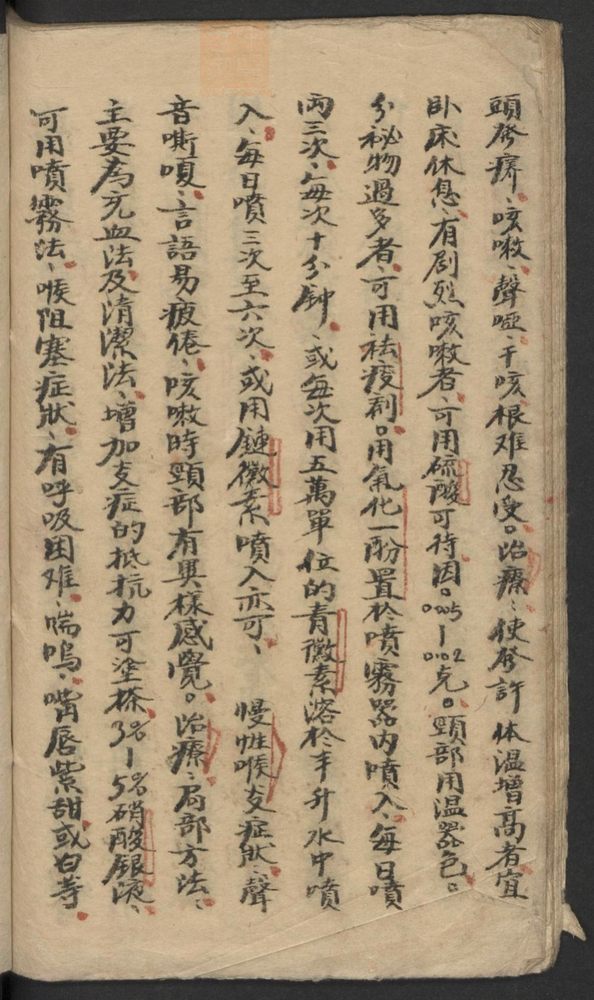 頭發癢、咳嗽、聲啞、干咳根难忍受。治療：使發許体温增高者宜
卧床休息、有剧烈咳嗽者、可用硫酸可待因。0.005—0.02克。頸部用温器色。
分秘物過多者、可用祛痰剂。用氣化一酚置於喷霧器内喷入、每日噴
两三次、每次十分鈡、或每次用五萬單位的青黴素溶於半升水中噴
入、每日噴三次至六次、或用鏈黴素噴入亦可、 慢性喉支症狀、聲
音嘶嗄、言語易疲倦、咳嗽時頸部有異樣感覺。治療：局部方法、
主要為充血法及清潔法、增加支症的抵抗力可塗搽3%—5%硝酸銀液、
可用噴霧法、喉阻塞症狀、有呼吸困难、喘鳴、嘴唇紫甜或白等、